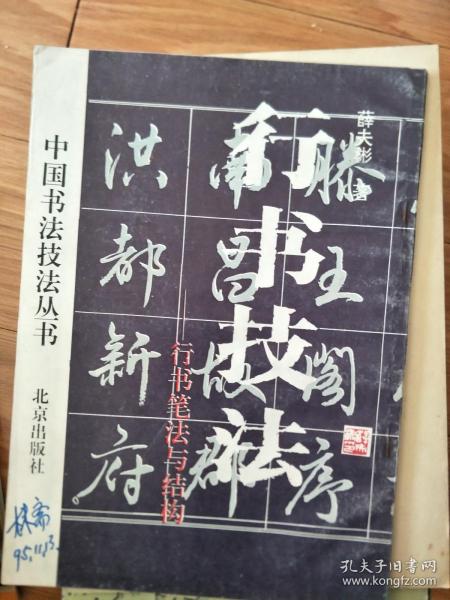 中国书法技法丛书
北京出版社
薛夫彬 著
行书技法
——行书笔法与结构
滕王阁序
南昌故郡
洪都新府
95.11.13.
孔夫子旧书网
kongfz.com